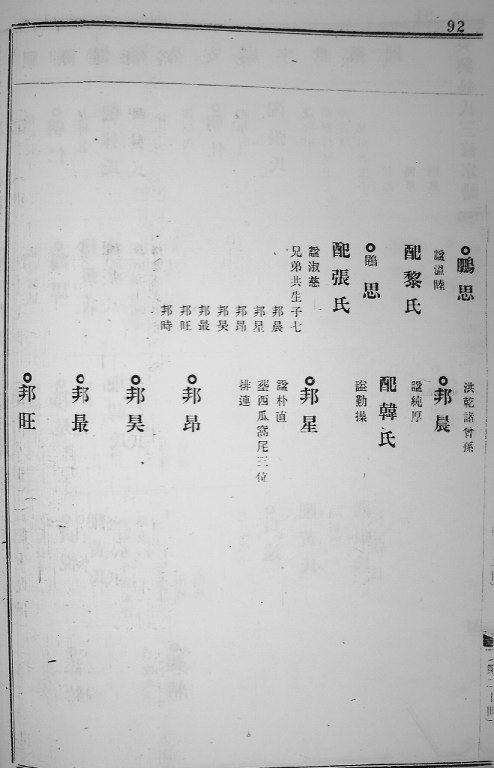 92
鵬思
諡溫睦
配黎氏
鵾思
配張氏
諡淑慈
兄弟共生子七
邦晨
邦星
邦昂
邦昊
邦最
邦旺
邦時
洪乾諸曾孫
邦晨
諡純厚
配韓氏
諡勤操
邦星
諡朴直
塟西瓜窩尾三位
排連
邦昂
邦昊
邦最
邦旺